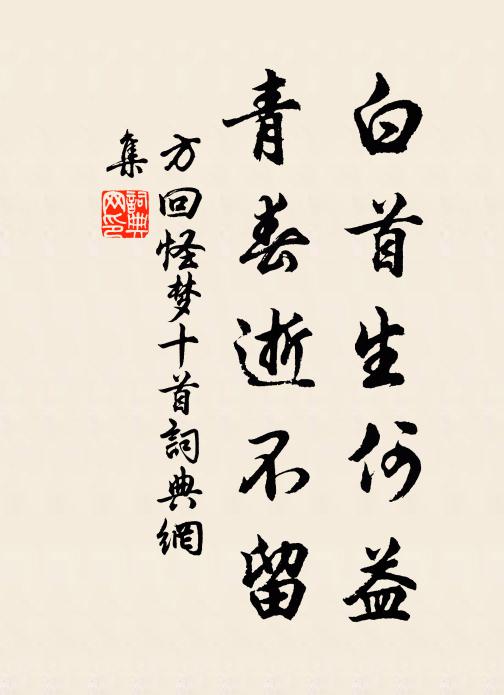 白首生何益
青春逝不留
方回怪梦十首詞典網
集
詞典
网印